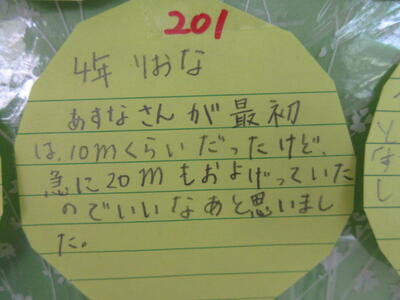 201
4年 りおな
あすなさんが最初
は、10mくらいだったけど、
急に20mもおよげっていた
のでいいなあと思いまし
た。